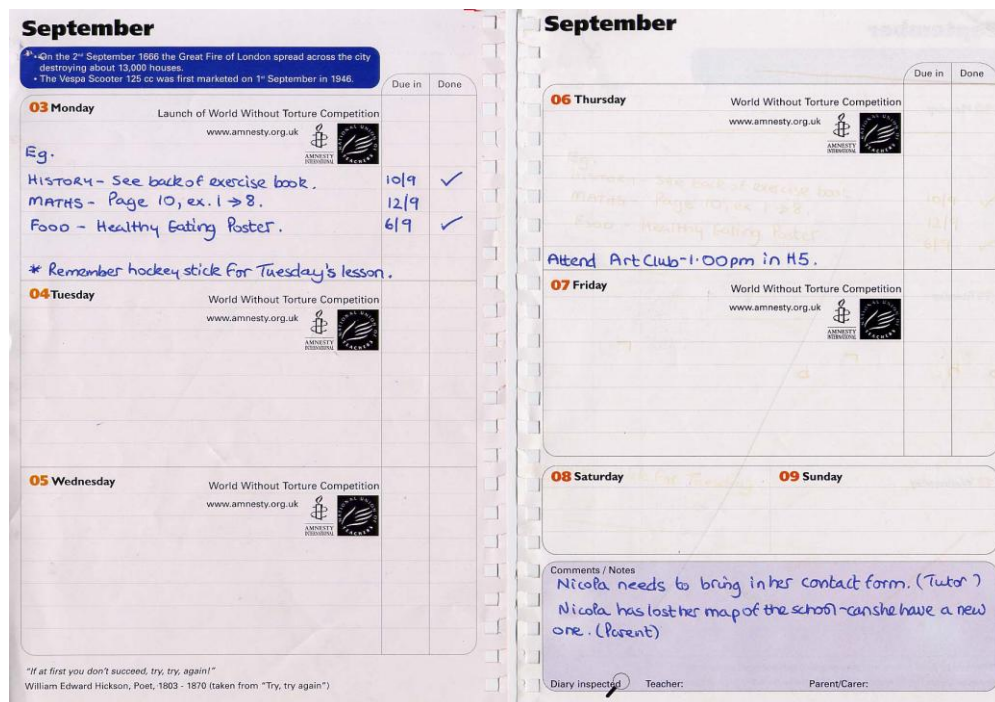 September
• On the 2nd September 1666 the Great Fire of London spread across the city
destroying about 13,000 houses.
• The Vespa Scooter 125 cc was first marketed on 1st September in 1946.
Due in Done
03 Monday
Launch of World Without Torture Competition
www.amnesty.org.uk
AMNESTY
INTERNATIONAL
NATIONAL UNION OF TEACHERS
Eg.
HISTORY - See back of exercise book. 10/9 ✓
MATHS - Page 10, ex. 1 → 8. 12/9
FOOD - Healthy Eating Poster. 6/9 ✓
* Remember hockey stick for Tuesday's lesson.
04 Tuesday
World Without Torture Competition
www.amnesty.org.uk
AMNESTY
INTERNATIONAL
NATIONAL UNION OF TEACHERS
05 Wednesday
World Without Torture Competition
www.amnesty.org.uk
AMNESTY
INTERNATIONAL
NATIONAL UNION OF TEACHERS
"If at first you don't succeed, try, try, again!"
William Edward Hickson, Poet, 1803 - 1870 (taken from "Try, try again")
September
Due in Done
06 Thursday
World Without Torture Competition
www.amnesty.org.uk
AMNESTY
INTERNATIONAL
NATIONAL UNION OF TEACHERS
Attend Art Club - 1.00pm in H5.
07 Friday
World Without Torture Competition
www.amnesty.org.uk
AMNESTY
INTERNATIONAL
NATIONAL UNION OF TEACHERS
08 Saturday 09 Sunday
Comments / Notes
Nicola needs to bring in her contact form. (Tutor)
Nicola has lost her map of the school - can she have a new
one. (Parent)
Diary inspected Teacher: Parent/Carer: